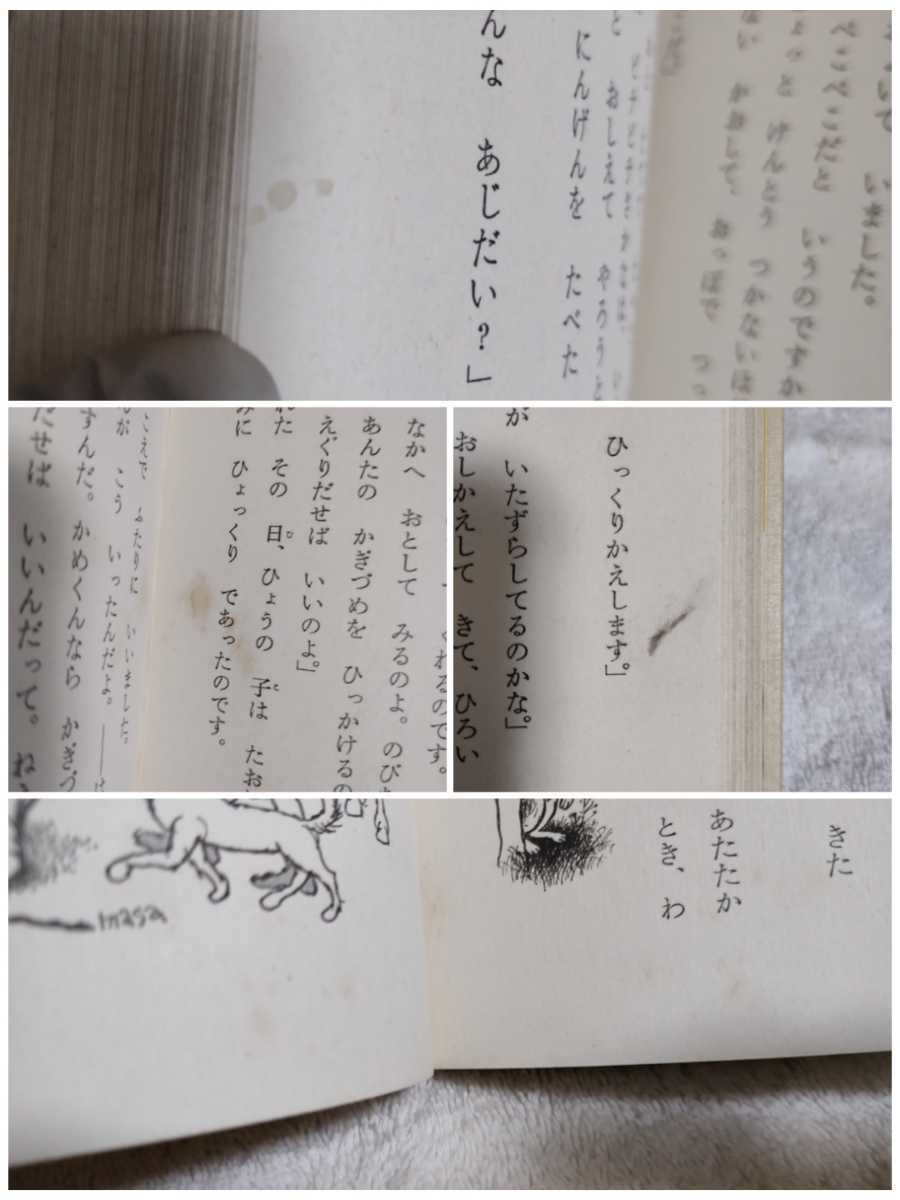 んな　あじだい？」
にんげんを　たべた
と　おしえて　やろうと
いて　いました。
ぺこぺこだと　いうのですか
ょっと　けんとう　つかないほ
かおして、おっぽで　つっ
なかへ　おとして　みるのよ。のび
くれるのです。
あんたの　かぎづめを　ひっかけるの
えぐりだせば　いいのよ。」
れた　その　日、ひょうの　子は　たお
みに　ひょっくり　であったのです。
こえで　ふたりに　いいました。
が　こう　いったんだよ。――は
ずんだ。かめくんなら　かぎづ
だせば　いいんだって。ね
ひっくりかえします。」
が　いたずらしてるのかな。」
おしかえして　きて、ひろい
きた
あたたか
とき、わ
masa